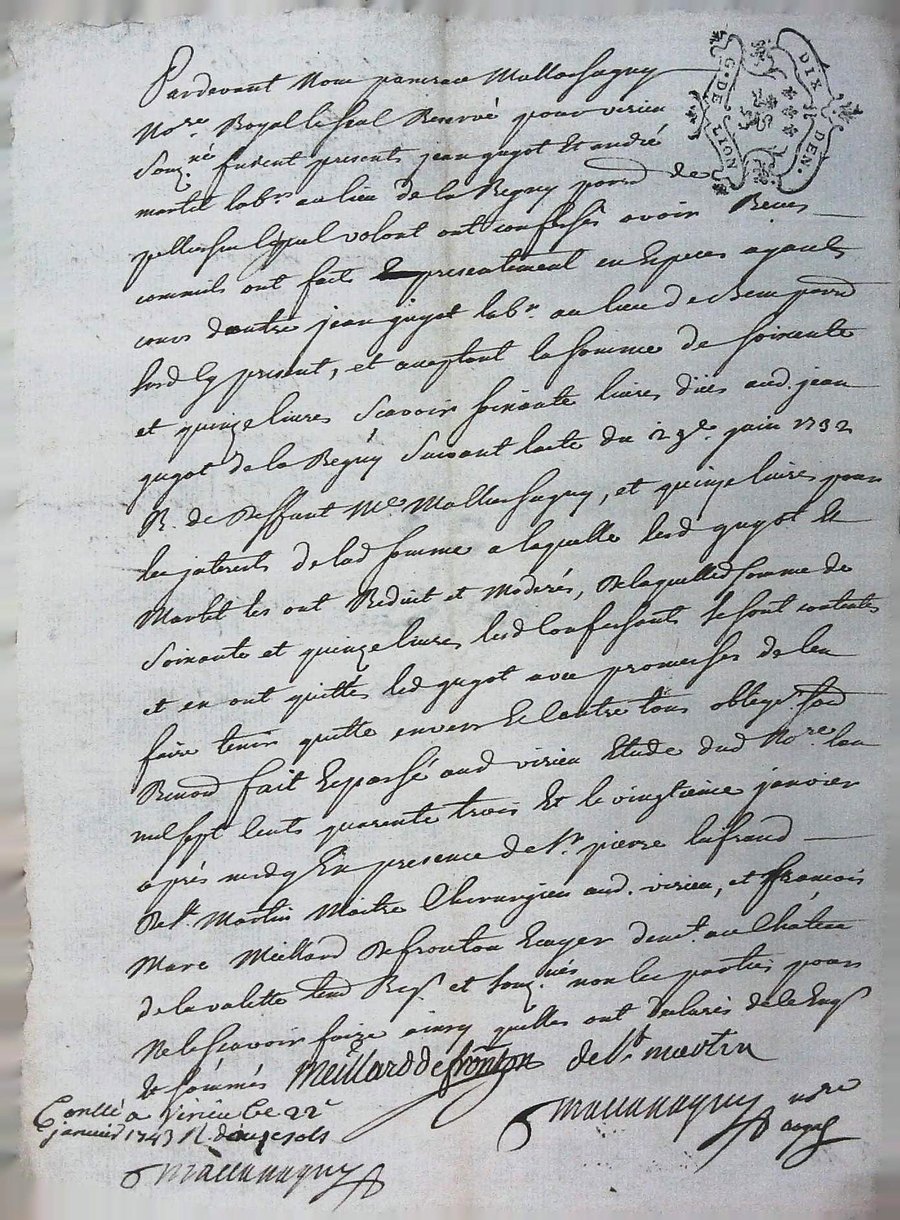 G. DE LION DIX DEN.
Pardevant Nous pancrace Mallassagny
No.re Royal le seal Reservé pour virieu
Souz.né furent presents jean guyot Et andré
martel lab.rs au lieu de la Reguy parr.d de
pellussin lesquel volont ont confessés avoir Receu
commils ont fait presentement en Especes ayants
cours dautre jean guyot lab.r au lieu de parr.d
susd Cy present, et aceptant la somme de soixante
et quinze livres Scavoir soixante livres dües aud. jean
guyot de la Reguy Suivant lacte du 29e. juin 1732
R. de deffunt Me Mallassagny, et quinze livres pour
les jnterests de lad somme a laquelle lesd guyot Et
Martel les ont Reduit et Moderés, de laquelled somme de
Soixante et quinze livres lesd Confessants se sont contentés
et en ont quittés led guyot avec promesses de len
faire tenir quitte envers Et contre tous obleg.s sou
Renon fait Et passé aud virieu Etude dud No.re lan
mil sept Cents quarente trois Et le vingtieme janvier
après midy En presence de Sr. pierre lafraud
de St. Martin Maitre Chirurgien aud. virieu, et françois
Marc Meillard de fronton Ecuyer demt. au Château
de la valette tend Req.s et souz.nés non les parties pour
Ne le scavoir faire ainsy quelles ont declarés de ce Enq.s
Et sommés Meillard de fronton de St. martin
Conllé a virieu Ce 22e
janvier 1743 R. douze sols
Mallassagny
Mallassagny no.re